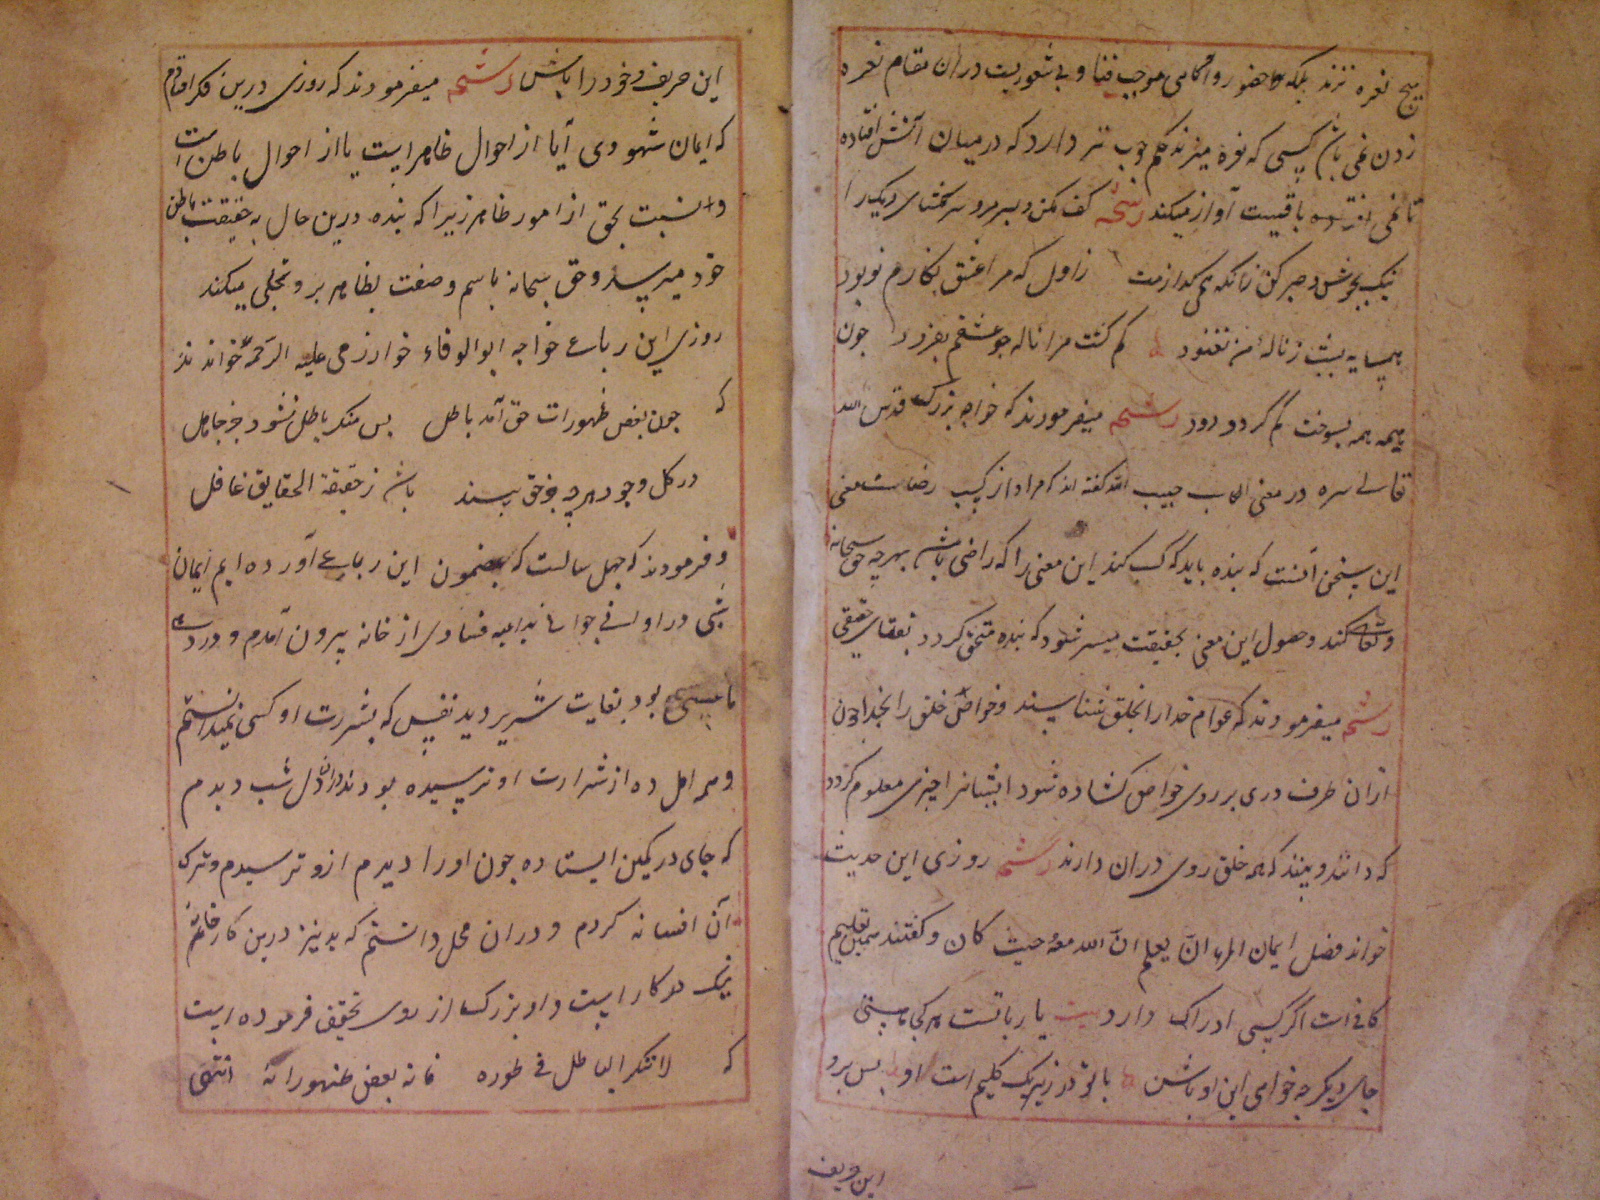 هیچ نعره نزند بلکه حضور و آگاهی موجب فنا و بی شعوریست در ان مقام نعره
زدن نمی باشد کسی که نعره میزند حکم چوب تر دارد که درمیان آتش افتاده
تا نمی از تری ده باقیست آواز میکند رشحه کف مکن و بسر مرو سر مکشای دیک را
نیک بجوش و صبر کن زانکه همی پزانمت ز اول که مرا عشق نگارم نو بود
همسایه بشب ز ناله من نغنود کم کشت مرا ناله جو عشقم بفزود جون
همه بسوخت کم کردد دود رشحه میفرمودند که خواجه بزرک قدس الله
تعالی سره در معنی الکاسب حبیب الله کفته اند که مراد از کسب رضاست معنی
این سخن آنست که بنده باید که کسب کند این معنی را که راضی باشد بهرچه حق سبحانه
کند و حصول این معنی بحقیقت میسر شود که بنده متحقق کردد ببقای حقیقی
رشحه میفرمودند که عوام خدا را بخلق شناسند و خواص خلق را بخدا چون
ازان طرف دری بر روی خواص کشاده شود ایشانرا چیزی معلوم کردد
که دانند و بینند که همه خلق روی دران دارند رشحه روزی این حدیث
خواند فضل ایمان المرء انّ یعلم انّ الله معه حیث کان و کفتند همین تعلیم
کافی است اگر کسی ادراک دارد بیت یار با تست هر کجا هستی
جای دیکر چه خواهی ای اوباش با تو در زیر یک کلیم است او پس برو
این حریف
این حریف و خود را باش رشحه میفرمودند که روزی درین فکر افتادم
که ایمان شهودی آیا از احوال ظاهر است یا از احوال باطن است
و نسبت بحق از امور ظاهر زیرا که بنده درین حال به حقیقت باطن
خود میرسد و حق سبحانه باسم و صفت الظاهر برو تجلی میکند
روزی این رباعی خواجه ابوالوفاء خوارزمی علیه الرحمه خواندند
که جون بعض ظهورات حق آمد باطل پس منکر باطل نشود جز جاهل
در کل وجود هر که جز حق بیند باشد ز حقیقة الحقایق غافل
و فرمودند که جهل سالست که بمضمون این رباعی آورده ایم ایمان
شبی در اوایل جوانی بداعیه فسادی از خانه بیرون آمدم و در ده
ما عسسی بود بغایت شریر و بد نفس که بشررت او کسی نمیدانستم
و همه اهل ده از شرارت او ترسیده بودند دران دل شب دیدم
که جای در کمین ایستاده جون او را دیدم ازو ترسیدم و ترک
آن افسانه کردم و دران محل دانستم که بد نیز درین کارخانه
نیک در کار است و او بزرک از روی تحقیق فرموده است
که لا تنکر الباطل فی طوره فانه بعض ظهوراته انتهی